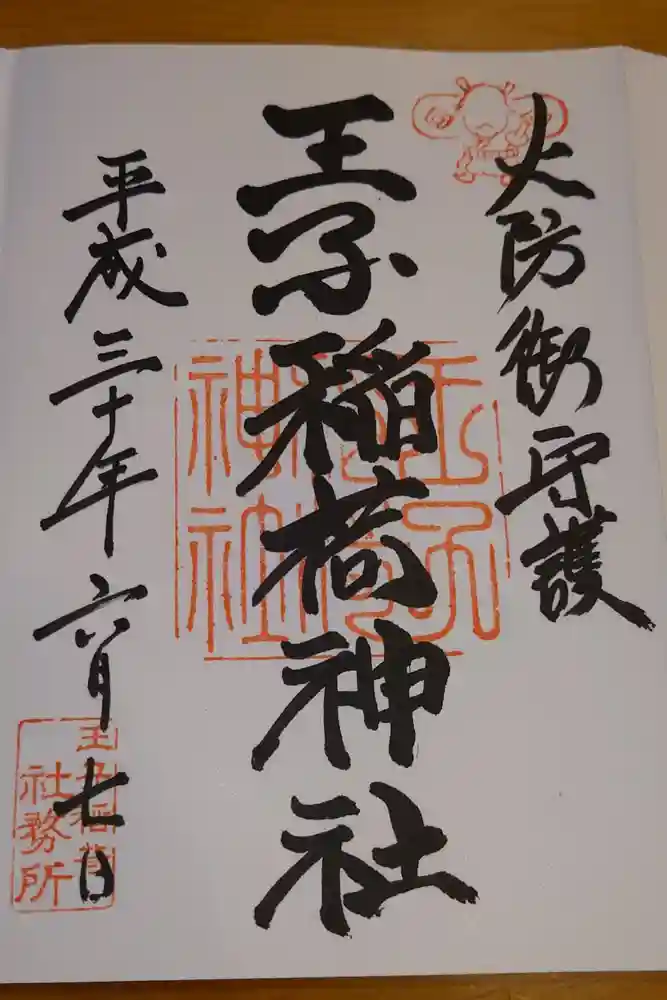 火防御守護
王子稲荷神社
平成三十年六月七日
王子稲荷神社
王子稲荷
社務所